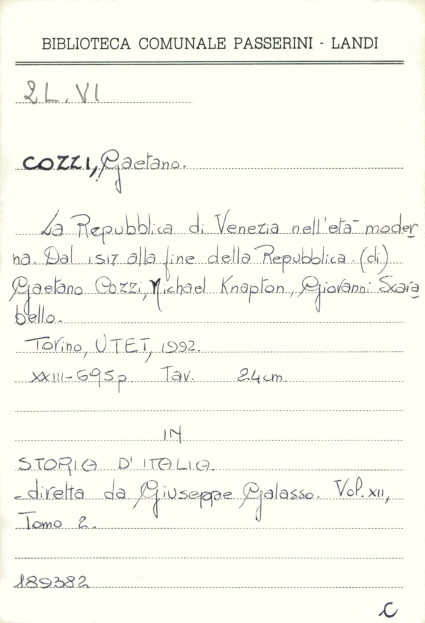 BIBLIOTECA COMUNALE PASSERINI - LANDI
2L.VI
COZZI, Gaetano.
La Repubblica di Venezia nell'età moder
na. Dal 1517 alla fine della Repubblica. (di)
Gaetano Cozzi, Michael Knapton, Giovanni Scara
bello.
Torino, UTET, 1992.
XXIII-695p. Tav. 24cm.
IN
STORIA D'ITALIA.
-diretta da Giuseppe Galasso. Vol. XII,
Tomo 2.
189382
C